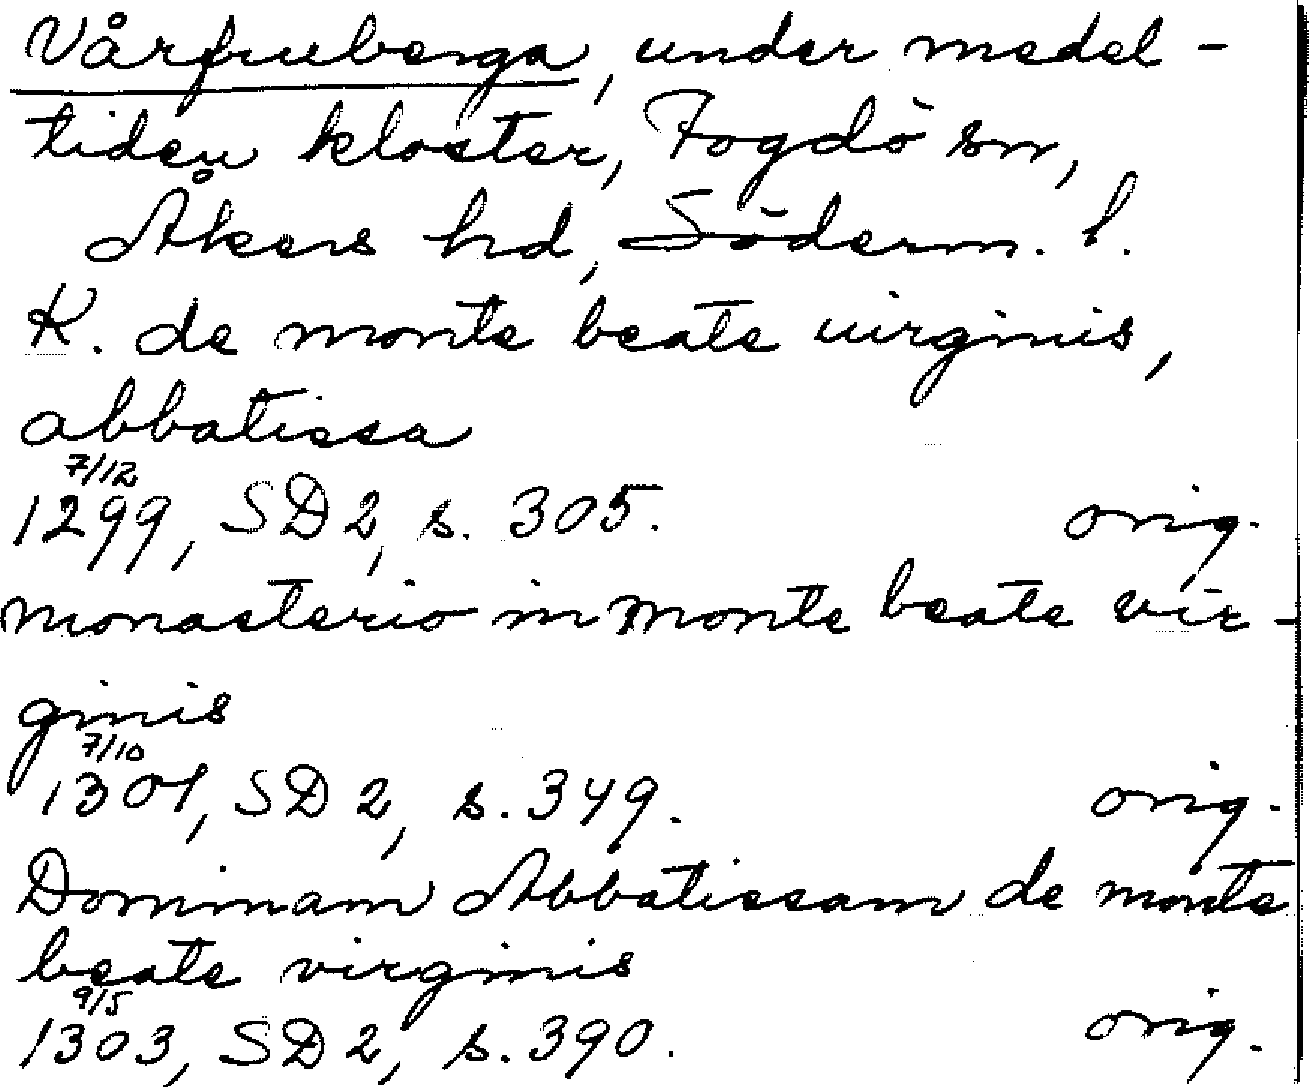 Vårfruberga, under medel-
tiden kloster, Fogdö sn,
Åkers hd, Söderm. l.
K. de monte beate uirginis,
abbatissa
7/12
1299, SD 2, s. 305. orig.
monasterio in monte beate vir-
ginis
7/10
1301, SD 2, s. 349. orig.
Dominam Abbatissam de monte
beate virginis
9/5
1303, SD 2, s. 390. orig.